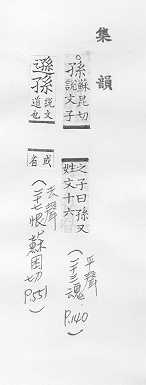 集韻
○孫蘇昆切
說文子
之子曰孫又
姓文十六
(二十三魂 P.140
平聲
遜孫說文
遁也
或
省
去聲
(二十七恨蘇困切
P.551